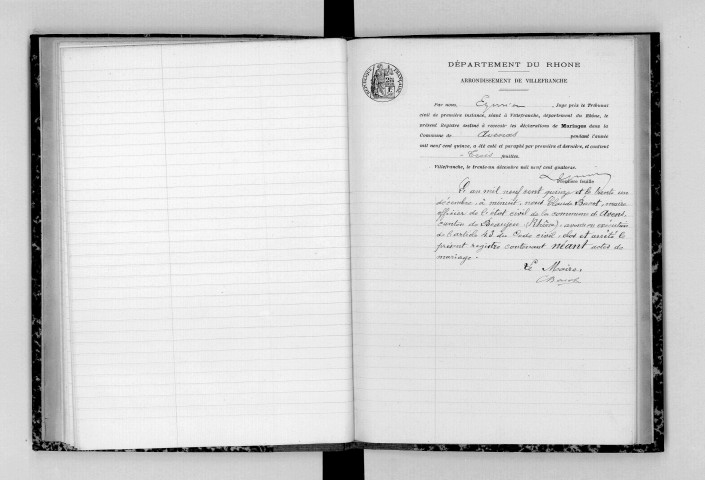 DÉPARTEMENT DU RHONE
ARRONDISSEMENT DE VILLEFRANCHE
Par nous, Juge près le Tribunal
civil de première instance, séant à Villefranche, département du Rhône, le
présent Registre destiné à recevoir les déclarations de Mariages dans la
Commune de Avenas pendant l'année
mil neuf cent quinze, a été coté et paraphé par première et dernière, et contient
Trois feuilles.
Villefranche, le trente-un décembre mil neuf cent quatorze.
feuille
L'an mil neuf cent quinze et le trente un
décembre, à minuit, nous Claude maire
officier de l'état civil de la commune d'Avenas,
canton de Beaujeu (Rhône), avons en exécution
de l'article 43 du Code civil, clos et arrêté le
présent registre contenant néant actes de
mariage.
Le Maire,